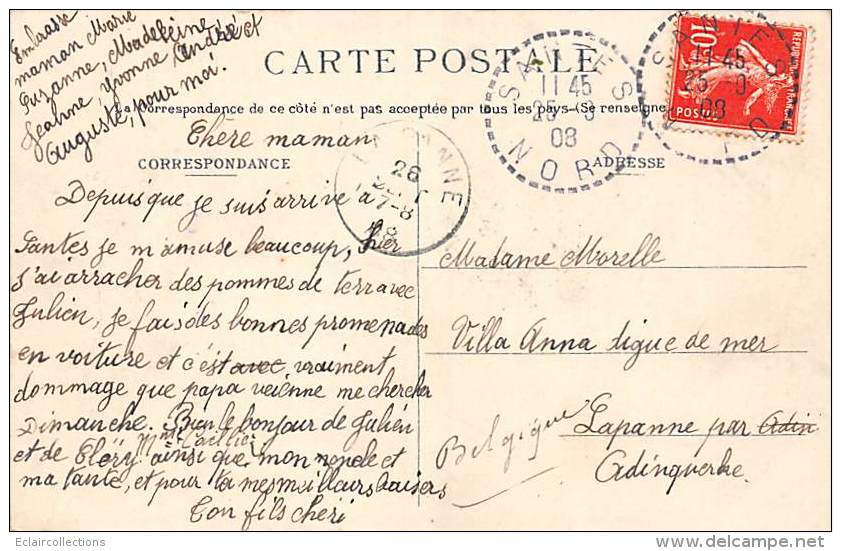 Embrasse
maman Marie
Suzanne, Madeleine
Jeanne, Yvonne André et
Auguste, pour moi.
CARTE POSTALE
La Correspondance de ce côté n'est pas acceptée par tous les pays - (Se renseigne
Chère maman
CORRESPONDANCE
ADRESSE
Depuis que je suis arrivé à
je m'amuse beaucoup, hier
j'ai arracher des pommes de terr avec
Julien, je fais des bonnes promenades
en voiture et c'est avec vraiment
dommage que papa veienne me chercher
Dimanche. Bien le bonjour de Julien
et de Cléry Mme ainsi que mon et
ma tante, et pour toi mes meilleurs baisers
Ton fils cheri
Madame Morelle
Villa Anna digue de mer
Lapanne par Adin
Adinquerke
Belgique
11 45
25
08
NORD
PANNE
26
7-8
08
10
REPUBLIQUE FRANÇAISE
POSTES
11 45
25
08
Eclaircollections
www.delcampe.net